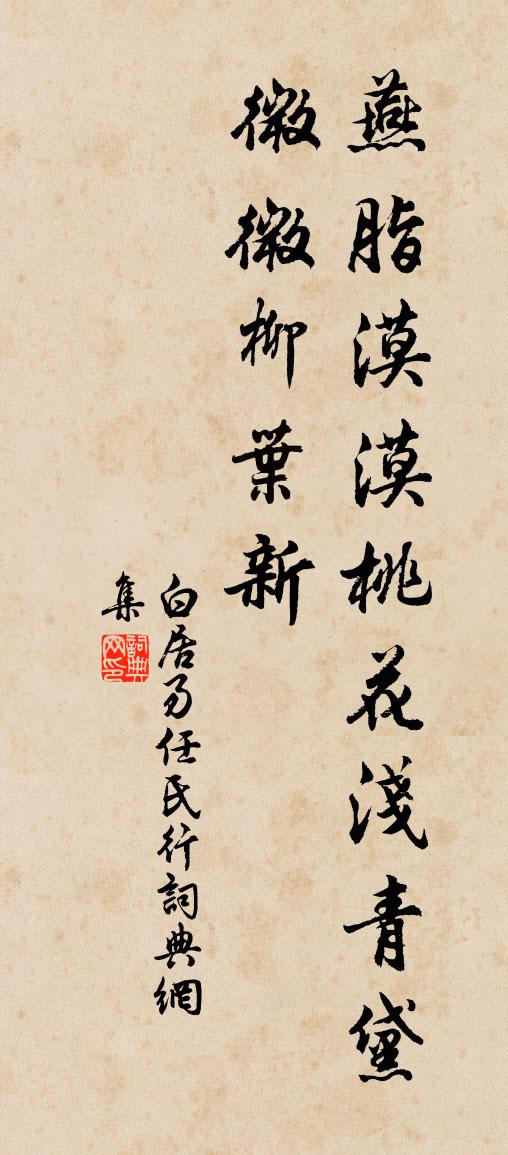 燕脂漠漠桃花淺青黛
微微柳葉新
白居易任氏行詞典網
集
詞典网印